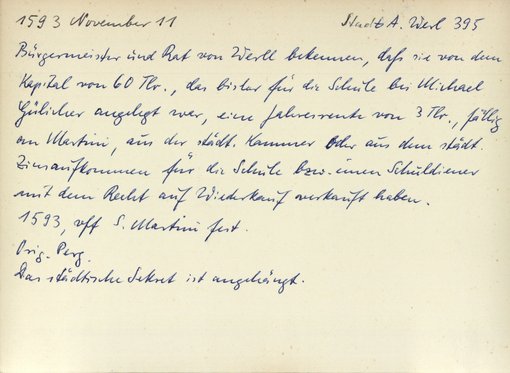 1593 November 11 Stadt A. Werl 395
Bürgermeister und Rat von Werll bekennen, daß sie von dem
Kapital von 60 Tlr., das bisher für die Schule bei Michael
Gülicher angelegt war, eine Jahresrente von 3 Tlr., fällig
an Martini, aus der städt. Kammer oder aus dem städt.
Zinsaufkommen für die Schule bzw. einen Schuldiener
mit dem Recht auf Wiederkauf verkauft haben.
1593, vff S. Martini fest.
Orig. Perg.
Das städtische Sekret ist angehängt.